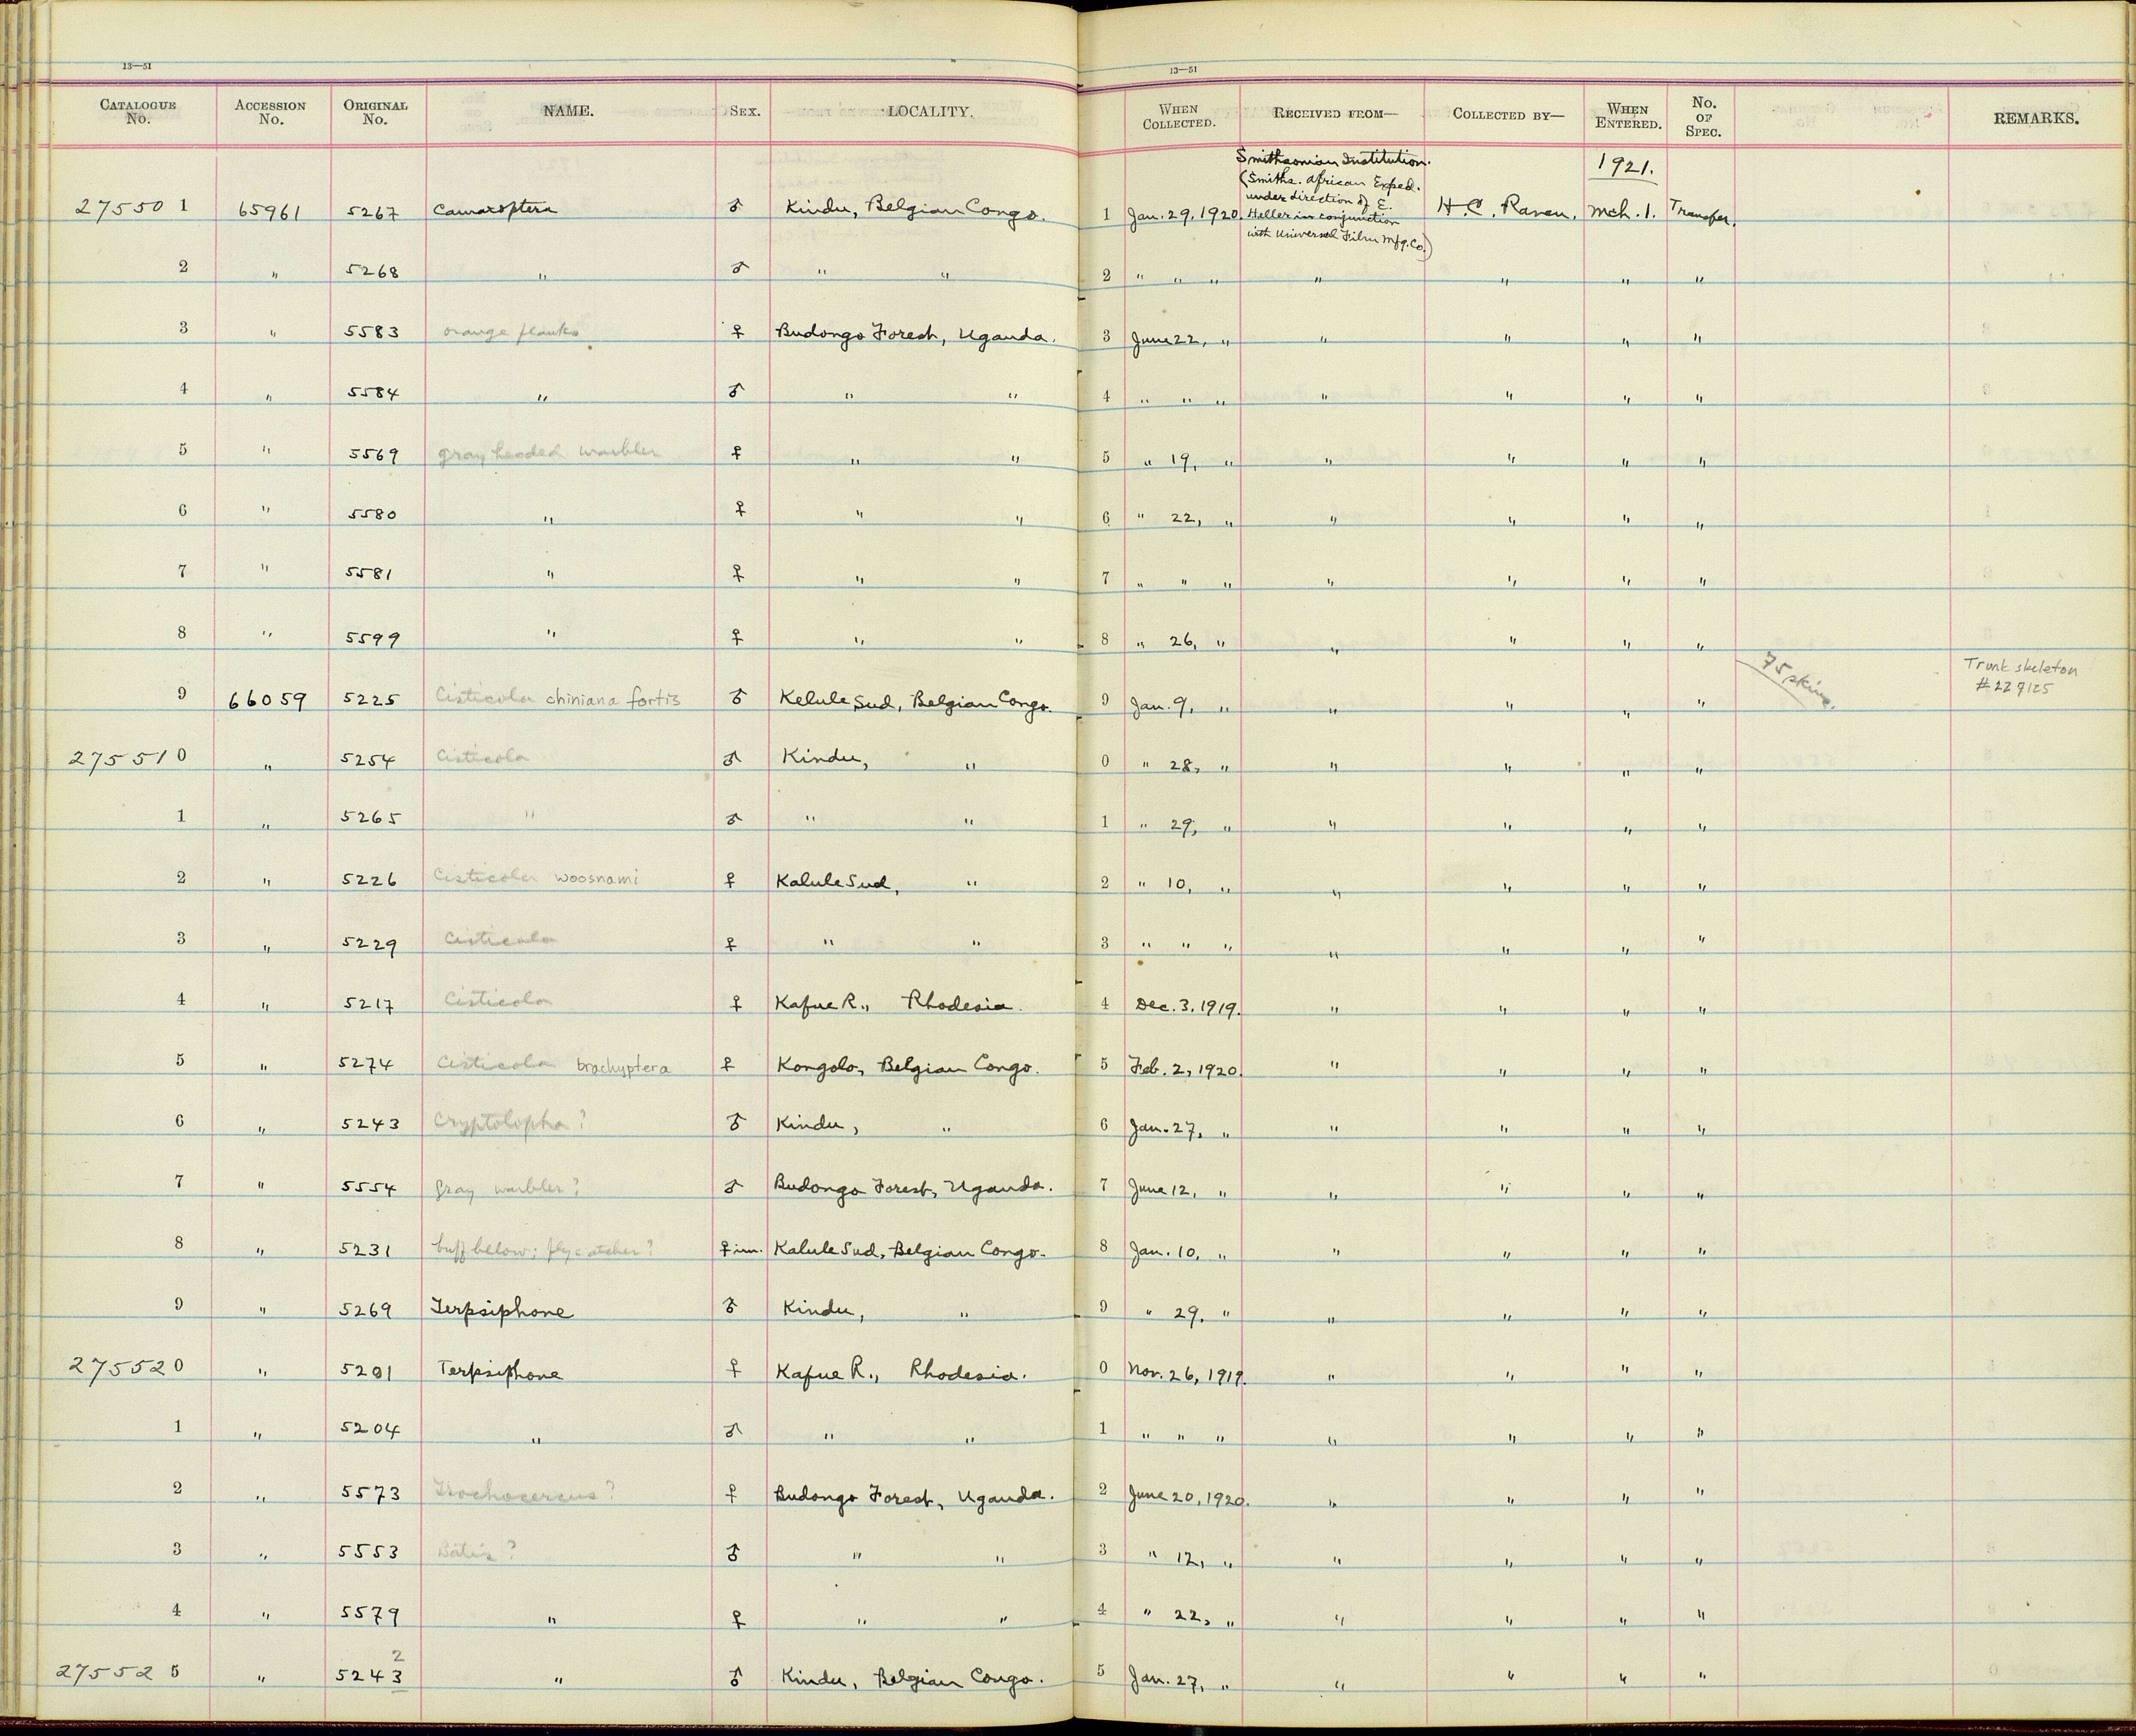 13—51 13—51
CATALOGUE No. ACCESSION No. ORIGINAL No. NAME. SEX. LOCALITY. WHEN COLLECTED. RECEIVED FROM— COLLECTED BY— WHEN ENTERED. No. OF SPEC. REMARKS.
Smithsonian Institution. 1921.
(Smiths. African Exped.
under direction of E.
27550 1 65961 5267 Camaroptera ♂ Kindu, Belgian Congo. 1 Jan. 29, 1920. Heller in conjunction H.C. Raven. Mch. 1. Transfer.
with Universal Film Mfg. Co.)
2 " 5268 " ♂ " " 2 " " " " " " "
3 " 5583 orange flanks ♀ Budongo Forest, Uganda. 3 June 22, " " " " "
4 " 5584 " ♂ " " 4 " " " " " " "
5 " 5569 gray headed warbler ♀ " " 5 " 19, " " " " "
6 " 5580 " ♀ " " 6 " 22, " " " " "
7 " 5581 " ♀ " " 7 " " " " " " "
8 " 5599 " ♀ " " 8 " 26, " " " " "
75 skins. Trunk skeleton
#227125
9 66059 5225 Cisticola chiniana fortis ♂ Kelule Sud, Belgian Congo. 9 Jan. 9, " " " " "
27551 0 " 5254 Cisticola ♂ Kindu, " 0 " 28, " " " " "
1 " 5265 " ♂ " " 1 " 29, " " " " "
2 " 5226 Cisticola woosnami ♀ Kalule Sud, " 2 " 10, " " " " "
3 " 5229 Cisticola ♀ " " 3 " " " " " " "
4 " 5217 Cisticola ♀ Kafue R., Rhodesia. 4 Dec. 3, 1919. " " " "
5 " 5274 Cisticola brachyptera ♀ Kongolo, Belgian Congo. 5 Feb. 2, 1920. " " " "
6 " 5243 Cryptolopha? ♂ Kindu, " 6 Jan. 27, " " " " "
7 " 5554 gray warbler? ♂ Budongo Forest, Uganda. 7 June 12, " " " " "
8 " 5231 buff below; flycatcher? ♀ im. Kalule Sud, Belgian Congo. 8 Jan. 10, " " " " "
9 " 5269 Terpsiphone ♂ Kindu, " 9 " 29, " " " " "
27552 0 " 5201 Terpsiphone ♀ Kafue R., Rhodesia. 0 Nov. 26, 1919. " " " "
1 " 5204 " ♂ " " 1 " " " " " " "
2 " 5573 Trochocercus? ♀ Budongo Forest, Uganda. 2 June 20, 1920. " " " "
3 " 5553 Batis? ♂ " " 3 " 12, " " " " "
4 " 5579 " ♀ " " 4 " 22, " " " " "
2
27552 5 " 5243 " ♂ Kindu, Belgian Congo. 5 Jan. 27, " " " " "